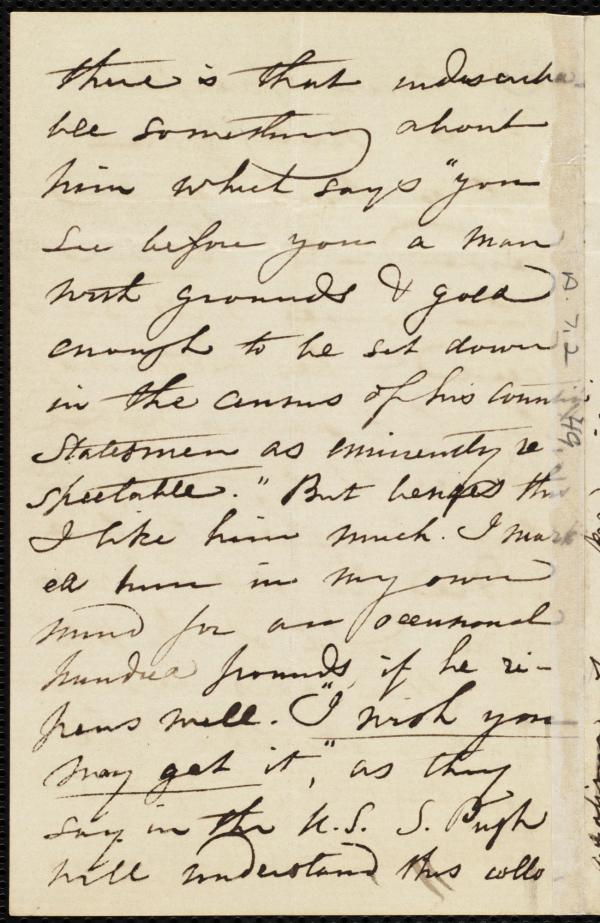 there is that indescriba-
ble something about
him which says "you
see before you a man
with grounds & gold
enough to be set down
in the census of his coun
Statesmen as eminently re
spectable." But besides th
I like him much. I mark
ed him in my own
mind for an occasional
hundred pounds, if he ri-
pens well. "I wish you
may get it," as they
say in the U.S. S. Pugh
will understand this collo
A. 7.2